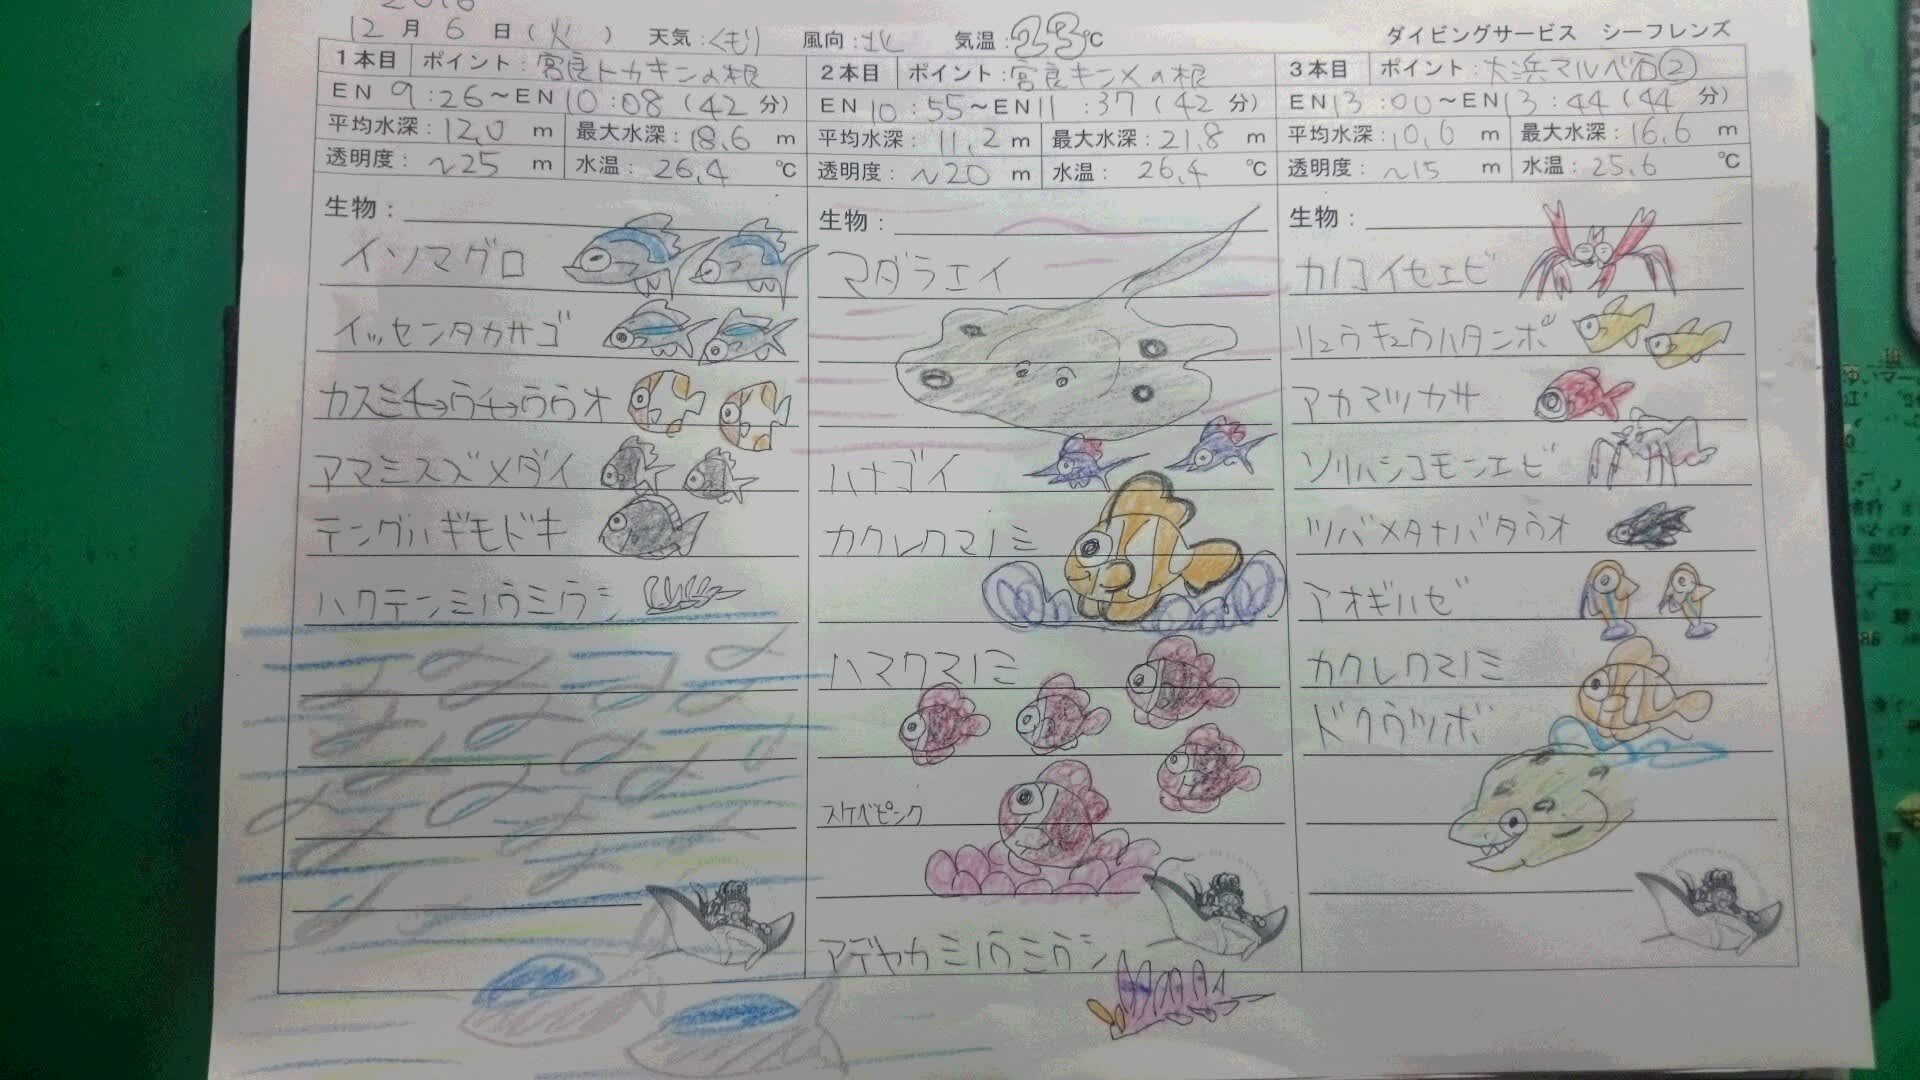 2016
12月 6 日(火) 天気:くもり 風向:北 気温:23℃ ダイビングサービス シーフレンズ
1本目 ポイント:宮良トカキンの根
EN 9:26～EN 10:08 (42 分)
平均水深:12.0 m 最大水深:18.6 m
透明度:～25 m 水温:26.4 ℃
生物:
イソマグロ
イッセンタカサゴ
カスミチョウチョウウオ
アマミスズメダイ
テングハギモドキ
ハクテンミノウミウシ
2本目 ポイント:宮良キンメの根
EN 10:55～EN 11:37 (42 分)
平均水深:11.2 m 最大水深:21.8 m
透明度:～20 m 水温:26.4 ℃
生物:
マダラエイ
ハナゴイ
カクレクマノミ
ハマクマノミ
スケベピンク
アデヤカミノウミウシ
3本目 ポイント:大浜マルベ石②
EN 13:00～EN 13:44 (44 分)
平均水深:10.6 m 最大水深:16.6 m
透明度:～15 m 水温:25.6 ℃
生物:
カノコイセエビ
リュウキュウハタンポ
アカマツカサ
ソリハシコモンエビ
ツバメタナバタウオ
アオギハゼ
カクレクマノミ
ドクウツボ